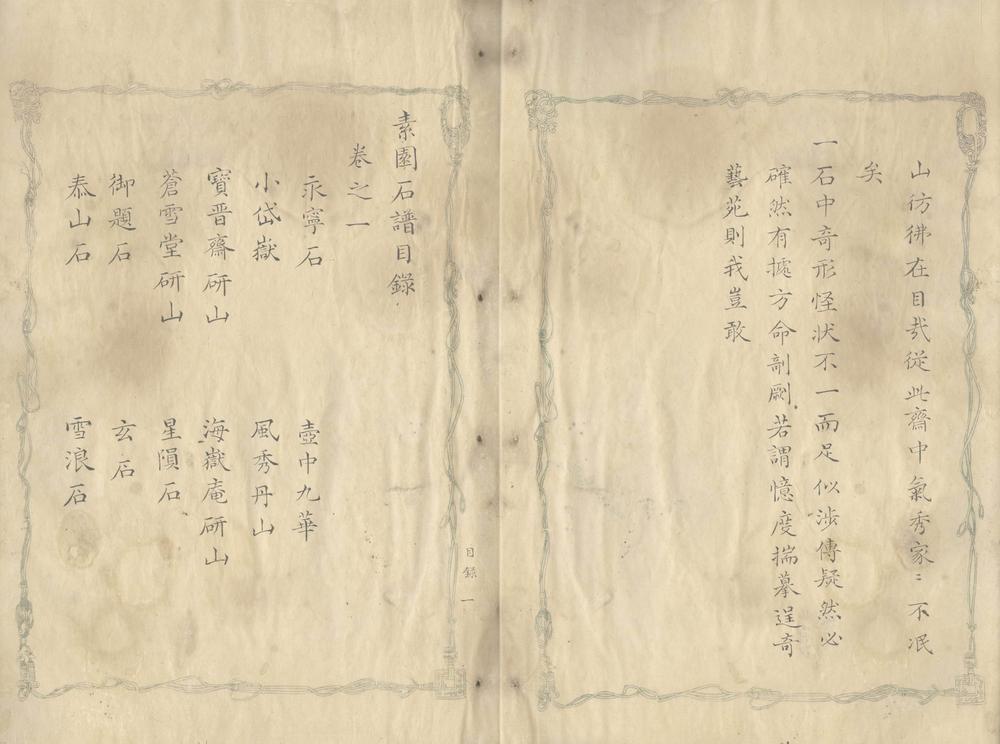 山彷彿在目哉從此齋中氣秀家〻不泯
矣
一石中奇形怪狀不一而足似涉傳疑然必
確然有據方命剞劂若謂憶度揣摹逞奇
藝苑則我豈敢
素園石譜目錄
卷之一
永寧石 壺中九華
小岱嶽 風秀丹山
寶晉齋研山 海嶽庵研山
蒼雪堂研山 星隕石
御題石 玄石
泰山石 雪浪石
目錄 一